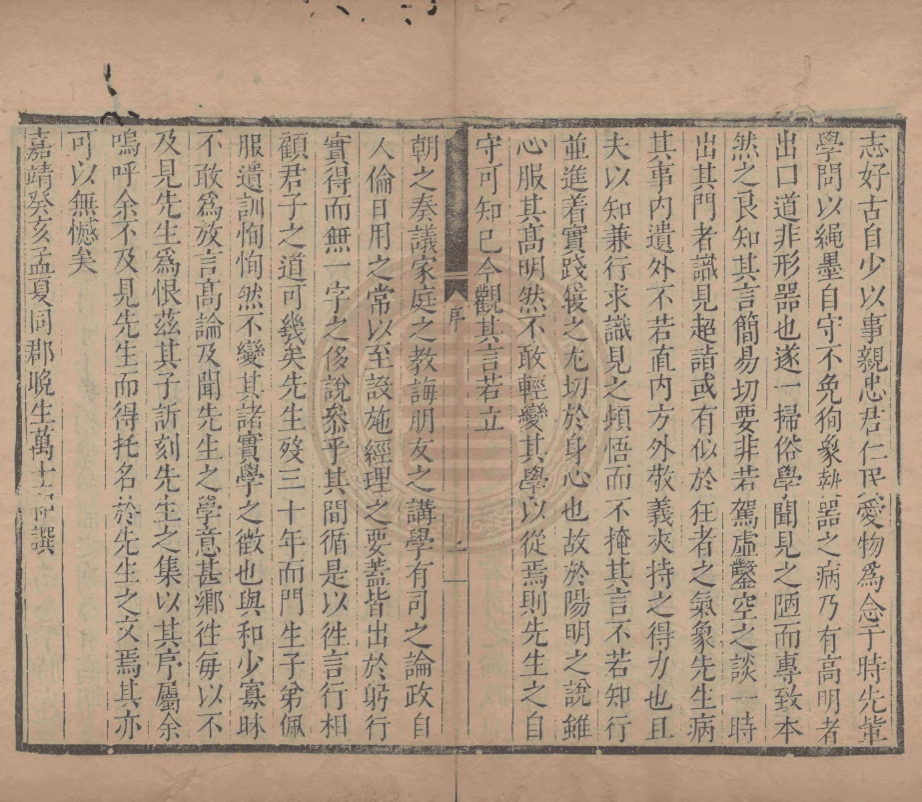 志好古自少以事親忠君仁民愛物爲念于時先輩
學問以繩墨自守不免徇象執器之病乃有高明者
出口道非形器也遂一掃俗學聞見之陋而專致本
然之良知其言簡易切要非若駕虛鑿空之談一時
出其門者識見超詣或有似於狂者之氣象先生病
其事內遺外不若直內方外敬義夾持之得力也且
夫以知兼行求識見之頻悟而不掩其言不若知行
並進着實踐履之尤切於身心也故於陽明之說雖
心服其高明然不敢輕變其學以從焉則先生之自
守可知已今觀其言若立
序
一
朝之奏議家庭之教誨朋友之講學有司之論政自
人倫日用之常以至設施經理之要蓋皆出於躬行
實得而無一字之侈說叅乎其間循是以徃言行相
顧君子之道可幾矣先生歿三十年而門生子弟佩
服遺訓恂恂然不變其諸實學之徵也與和少寡昧
不敢爲放言高論及聞先生之學意甚鄉徃每以不
及見先生爲恨茲其子訢刻先生之集以其序屬余
嗚呼余不及見先生而得托名於先生之文焉其亦
可以無憾矣
嘉靖癸亥孟夏同郡晚生萬士和撰